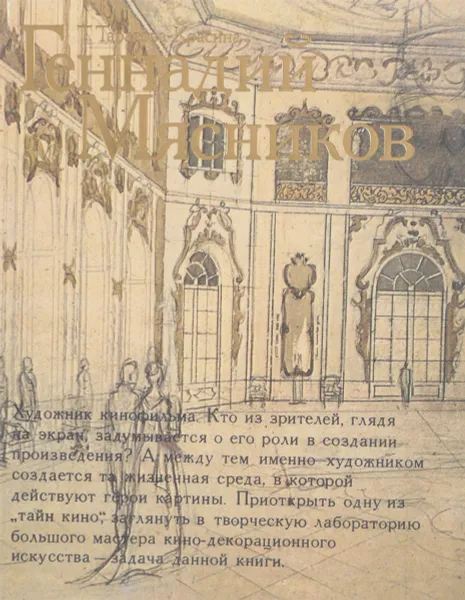 Тарасова-Красина
Геннадий
Мясников
Художник кинофильма. Кто из зрителей, глядя
на экран, задумывается о его роли в создании
произведения? А между тем именно художником
создается та жизненная среда, в которой
действуют герои картины. Приоткрыть одну из
„тайн кино“, заглянуть в творческую лабораторию
большого мастера кино-декорационного
искусства — задача данной книги.